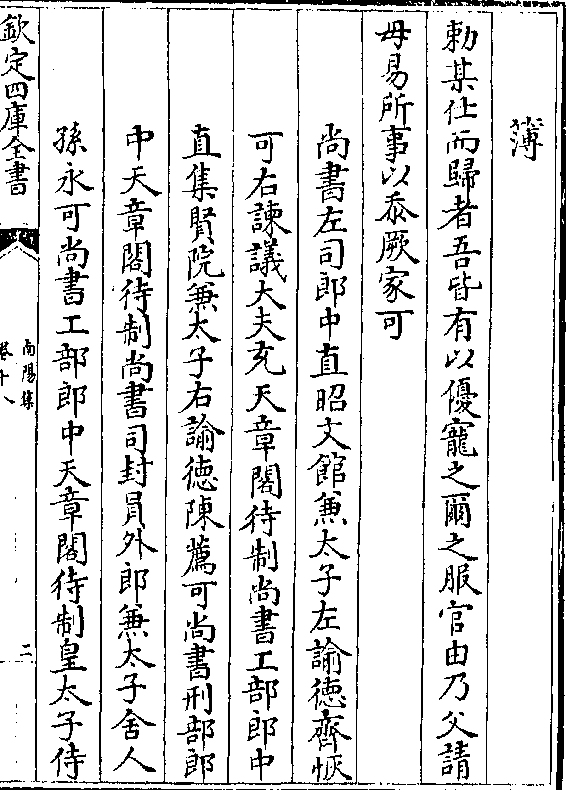 簿
勅某仕而歸者吾皆有以優寵之爾之服官由乃父請
毋易所事以忝厥家可
尚書左司郎中直昭文館兼太子左諭徳齊恢
可右諫議大夫充天章閣待制尚書工部郎中
直集賢院兼太子右諭徳陳薦可尚書刑部郎
中天章閣待制尚書司封員外郎兼太子舍人
孫永可尚書工部郎中天章閣待制皇太子侍
欽定四庫全書
南陽集
卷十八
二